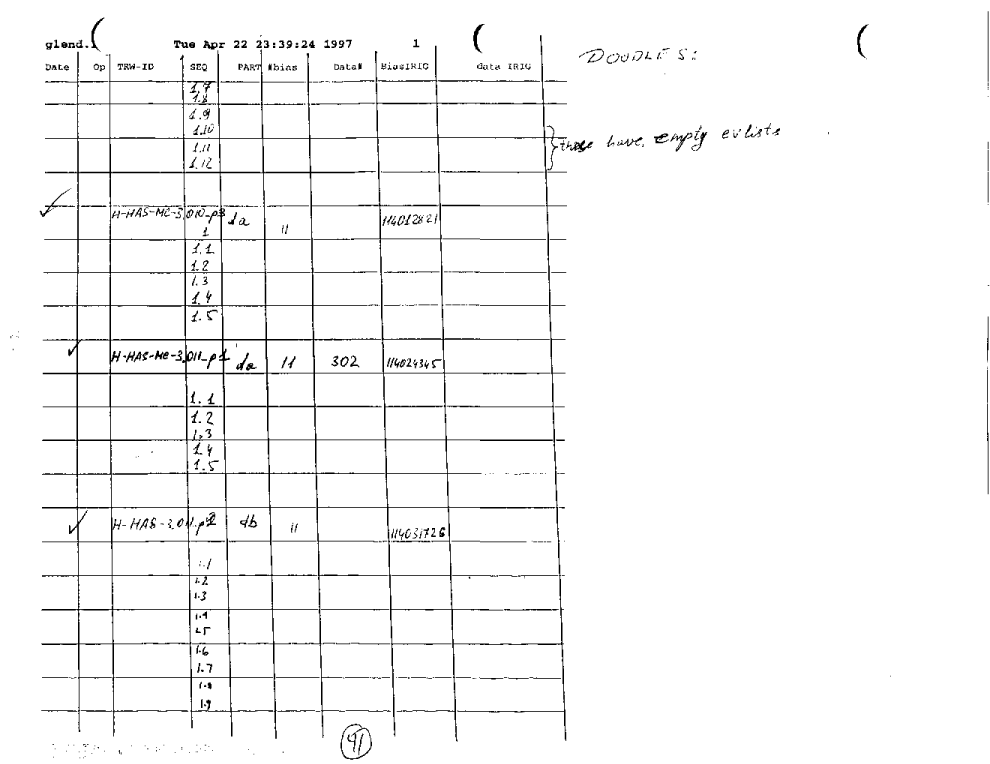 glend.
Tue Apr 22 23:39:24 1997 1
DOUDLE S:
Date Op TRW-ID SEQ PART Nbias Data# BiasIRIG data IRIG
1.7
1.8
1.9
1.10
1.11
1.12
these have empty evlists
H-HAS-MC-3.010_p3 da 11 114012821
1
1.1
1.2
1.3
1.4
1.5
H-HAS-MC-3.011_p1 da 11 302 114024345
1.1
1.2
1.3
1.4
1.5
H-HAS-3.011.p2 db 11 114031726
1.1
1.2
1.3
1.4
1.5
1.6
1.7
1.8
1.9
91